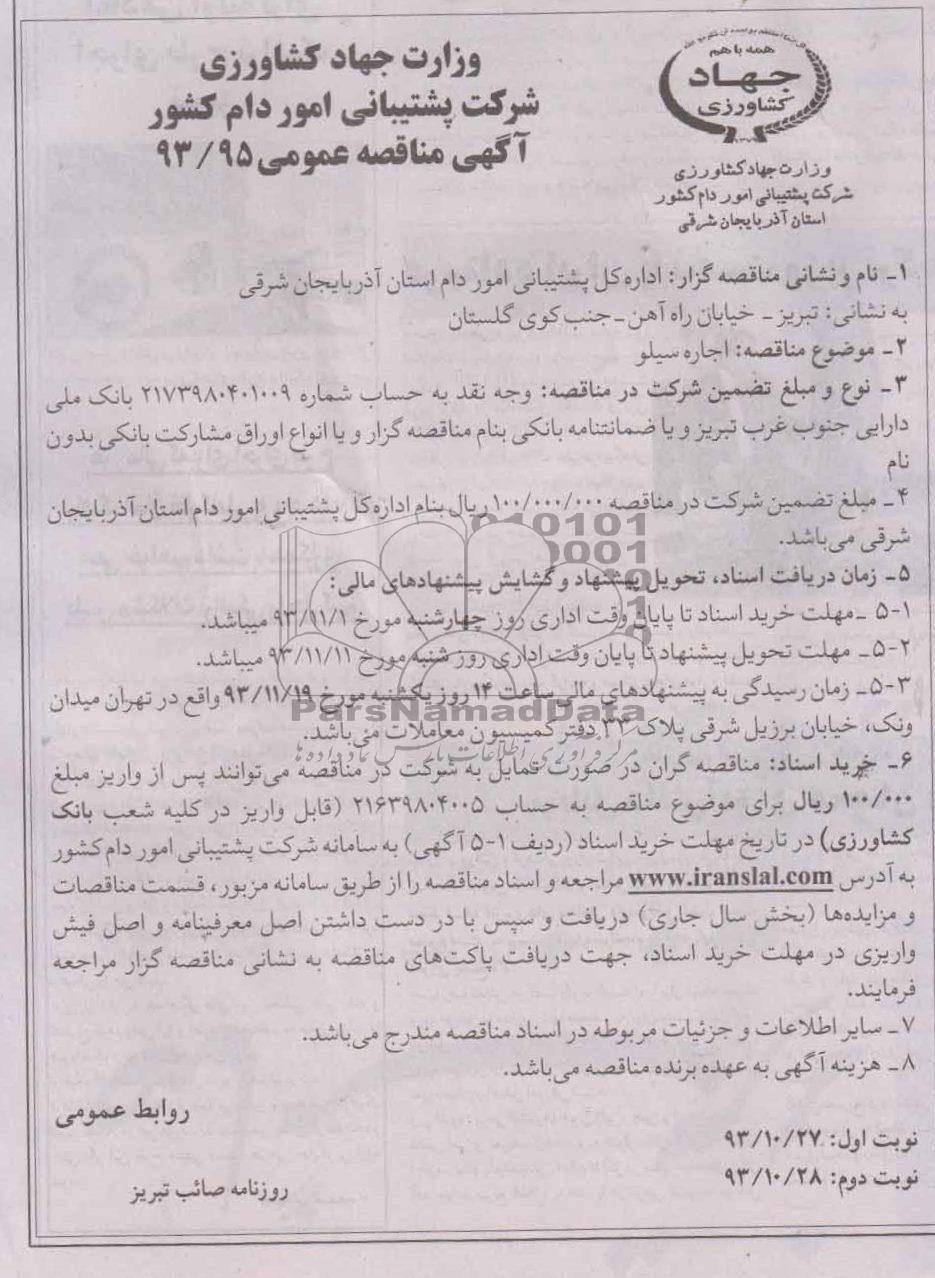 همه با هم
جهاد
کشاورزی
وزارت جهاد کشاورزی
شرکت پشتیبانی امور دام کشور
استان آذربایجان شرقی
وزارت جهاد کشاورزی
شرکت پشتیبانی امور دام کشور
آگهی مناقصه عمومی ۹۳/۹۵
۱ـ نام و نشانی مناقصه گزار: اداره کل پشتیبانی امور دام استان آذربایجان شرقی
به نشانی: تبریز ـ خیابان راه آهن ـ جنب کوی گلستان
۲ـ موضوع مناقصه: اجاره سیلو
۳ـ نوع و مبلغ تضمین شرکت در مناقصه: وجه نقد به حساب شماره ۲۱۷۳۹۸۰۴۰۱۰۰۹ بانک ملی
دارایی جنوب غرب تبریز و یا ضمانتنامه بانکی بنام مناقصه گزار و یا انواع اوراق مشارکت بانکی بدون
نام
۴ـ مبلغ تضمین شرکت در مناقصه ۱۰۰/۰۰۰/۰۰۰ ریال بنام اداره کل پشتیبانی امور دام استان آذربایجان
شرقی می‌باشد.
۵ـ زمان دریافت اسناد، تحویل پیشنهاد و گشایش پیشنهادهای مالی:
۵-۱ ـ مهلت خرید اسناد تا پایان وقت اداری روز چهارشنبه مورخ ۹۳/۱۱/۱ میباشد.
۵-۲ـ مهلت تحویل پیشنهاد تا پایان وقت اداری روز شنبه مورخ ۹۳/۱۱/۱۱ میباشد.
۵-۳ـ زمان رسیدگی به پیشنهادهای مالی ساعت ۱۴ روز یکشنبه مورخ ۹۳/۱۱/۱۹ واقع در تهران میدان
ونک، خیابان برزیل شرقی پلاک ۳۳ دفتر کمیسیون معاملات می باشد.
ParsNamadData
۶ـ خرید اسناد: مناقصه گران در صورت تمایل به شرکت در مناقصه می‌توانند پس از واریز مبلغ
۱۰۰/۰۰۰ ریال برای موضوع مناقصه به حساب ۲۱۶۳۹۸۰۴۰۰۵ (قابل واریز در کلیه شعب بانک
کشاورزی) در تاریخ مهلت خرید اسناد (ردیف ۱-۵ آگهی) به سامانه شرکت پشتیبانی امور دام کشور
به آدرس www.iranslal.com مراجعه و اسناد مناقصه را از طریق سامانه مزبور، قسمت مناقصات
و مزایده‌ها (بخش سال جاری) دریافت و سپس با در دست داشتن اصل معرفینامه و اصل فیش
واریزی در مهلت خرید اسناد، جهت دریافت پاکت‌های مناقصه به نشانی مناقصه گزار مراجعه
فرمایند.
۷ـ سایر اطلاعات و جزئیات مربوطه در اسناد مناقصه مندرج می‌باشد.
۸ـ هزینه آگهی به عهده برنده مناقصه می باشد.
روابط عمومی
نوبت اول: ۹۳/۱۰/۲۷
نوبت دوم: ۹۳/۱۰/۲۸
روزنامه صائب تبریز